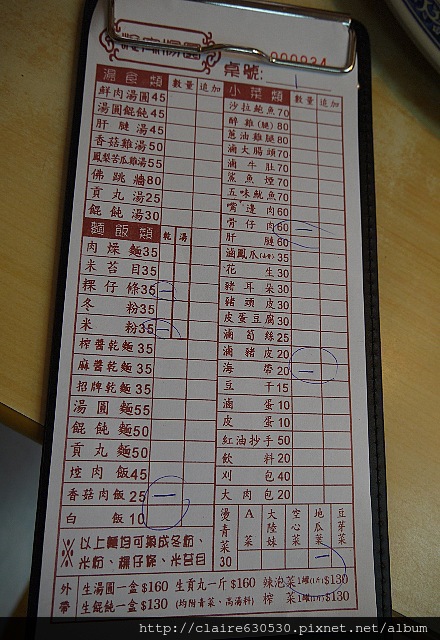 桌號:
湯食類 數量 追加
鮮肉湯圓45
湯圓餛飩45
肝腱湯45
香菇雞湯50
鳳梨苦瓜雞湯55
佛跳牆80
貢丸湯25
餛飩湯30
麵飯類 乾 湯
肉燥麵35
米苔目35
粿仔條35
冬粉35
米粉35
榨醬乾麵35
麻醬乾麵35
招牌乾麵35
湯圓麵55
餛飩麵50
貢丸麵50
焢肉飯45
香菇肉飯25
白飯10
※以上麵均可換成冬粉、
米粉、粿仔條、米苔目
小菜類 數量 追加
沙拉鮑魚70
醉雞(腿)80
蔥油雞腿80
滷大腸頭70
滷牛肚70
鯊魚煙70
五味魷魚70
嘴邊肉60
骨仔肉60
肝腱60
滷鳳爪35
花生30
豬耳朵30
豬頭皮30
皮蛋豆腐30
滷筍絲25
滷豬皮20
海帶20
豆干15
滷蛋10
皮蛋10
紅油抄手50
飲料20
刈包40
大肉包20
燙青菜30
A菜
大陸妹
空心菜
地瓜葉
豆芽菜
外帶
生湯圓一盒$160 生貢丸一斤$160 辣泡菜1罐(1斤)$130
生餛飩一盒$130 (均附青菜、高湯料) 榨菜1罐(1斤)$130
http://claire630530.pixnet.net/album